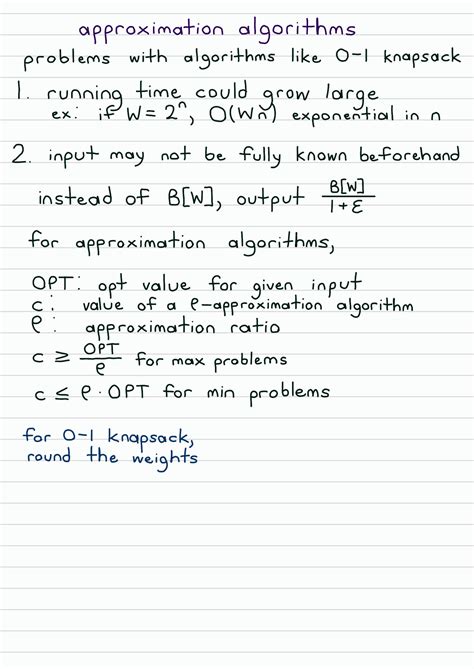 approximation algorithms
problems with algorithms like 0-1 knapsack
1. running time could grow large
ex: if W = 2^n, O(Wn) exponential in n
2. input may not be fully known beforehand
instead of B[W], output B[W]/(1+ε)
for approximation algorithms,
OPT: opt value for given input
c: value of a ρ-approximation algorithm
ρ: approximation ratio
c ≥ OPT/ρ for max problems
c ≤ ρ · OPT for min problems
for 0-1 knapsack,
round the weights